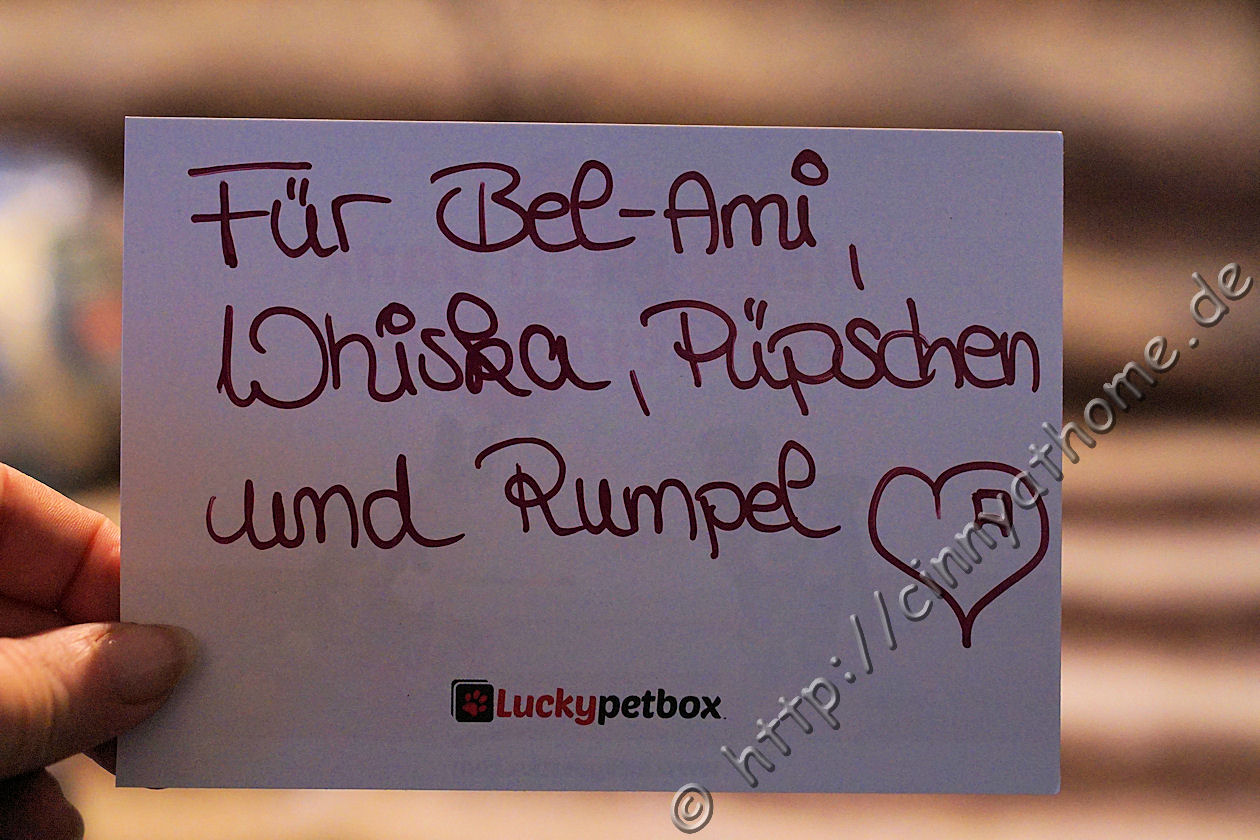 Für Bel-Ami,
Whiska, Püpschen
und Rumpel
Luckypetbox
© http://cinnyathome.de